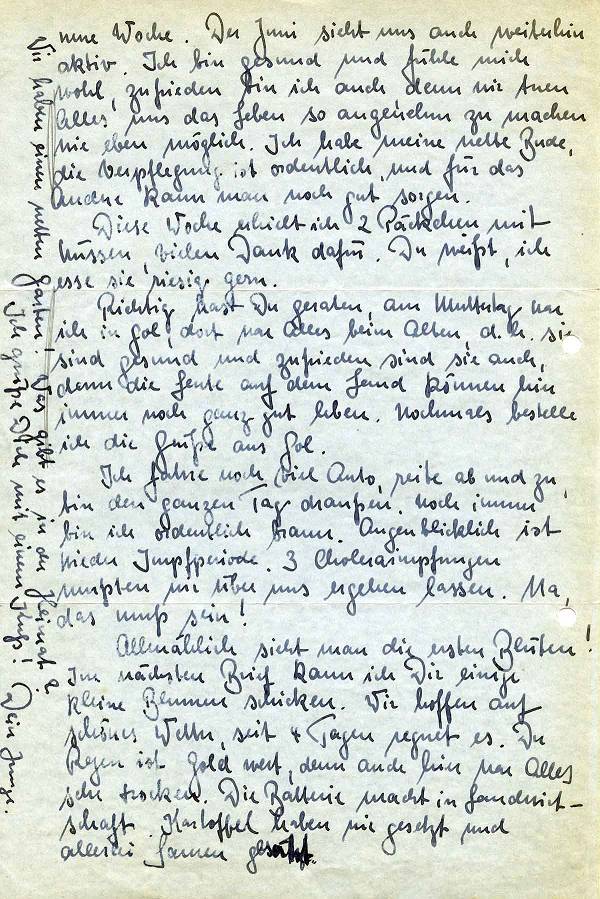 neue Woche. Der Juni sieht uns auch weiterhin
aktiv. Ich bin gesund und fühle mich
wohl, zufrieden bin ich auch denn wir tuen
Alles uns das Leben so angenehm zu machen
wie eben möglich. Ich habe meine nette Bude,
die Verpflegung ist ordentlich, und für das
Andere kann man noch gut sorgen.
Diese Woche erhielt ich 2 Päckchen mit
Nüssen, vielen Dank dafür. Du weißt, ich
esse sie riesig gern.
Richtig hast Du geraten, am Muttertag war
ich in Gol, dort war Alles beim Alten, d.h. sie
sind gesund und zufrieden sind sie auch,
denn die Leute auf dem Land können hier
immer noch ganz gut leben. Nochmals bestelle
ich die Grüße aus Gol.
Ich fahre noch viel Auto, reite ab und zu,
bin den ganzen Tag draußen. Noch immer
bin ich ordentlich braun. Augenblicklich ist
wieder Impfperiode. 3 Choleraimpfungen
mußten wir über uns ergehen lassen. Na,
das muß sein!
Allmählich sieht man die ersten Blüten!
Im nächsten Brief kann ich Dir einige
kleine Blumen schicken. Wir hoffen auf
schönes Wetter, seit 4 Tagen regnet es. Der
Regen ist Gold wert, denn auch hier war Alles
sehr trocken. Die Batterie macht in Landwirt-
schaft. Kartoffel haben wir gesetzt und
allerlei Samen gesetzt.
Wir haben einen netten Garten! Was gibt es in der Heimat?
Ich grüße Dich mit einem Kuß! Dein Junge.